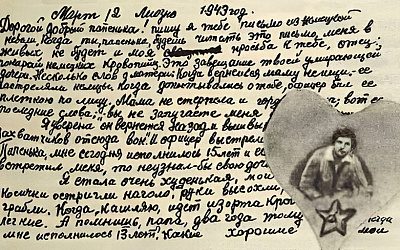 Март, 12, Лиозно, 1943 год.
Дорогой, добрый папенька! пишу я тебе письмо из немецкой
неволи. Когда ты, папенька, будешь читать это письмо, меня в
живых не будет. и моя просьба к тебе, отец:
покарай немецких кровопийц. Это завещание твоей умирающей
дочери. Несколько слов о матери. Когда вернешься, маму не ищи. Ее
расстреляли немцы. Когда допытывались о тебе, офицер бил ее
плеткою по лицу. Мама не стерпела и гордо вот ее
последние слова: „вы не запугаете меня
Я уверена, он вернется назад и вышвы
захватчиков отсюда вон. И офицер выстрел
Папенька, мне сегодня исполнилось 15 лет и если
встретил меня, то не узнал бы свою доч
Я стала очень худенькая, мои
косички остригли наголо, руки высохли,
грабли. Когда кашляю, идет изо рта кро
легкие. А помнишь, папа, два года тому
мне исполнилось 13 лет? Какие хорошие
когда
мои